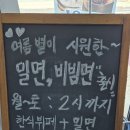 여름별미 시원한~
밀면, 비빔면 출시
월~토 : 2시까지
한식뷔페 + 밀면